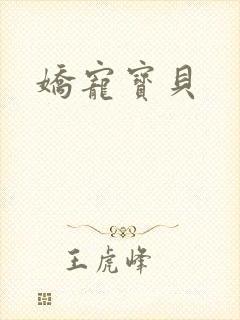 嬌寵寶貝
王虎峰